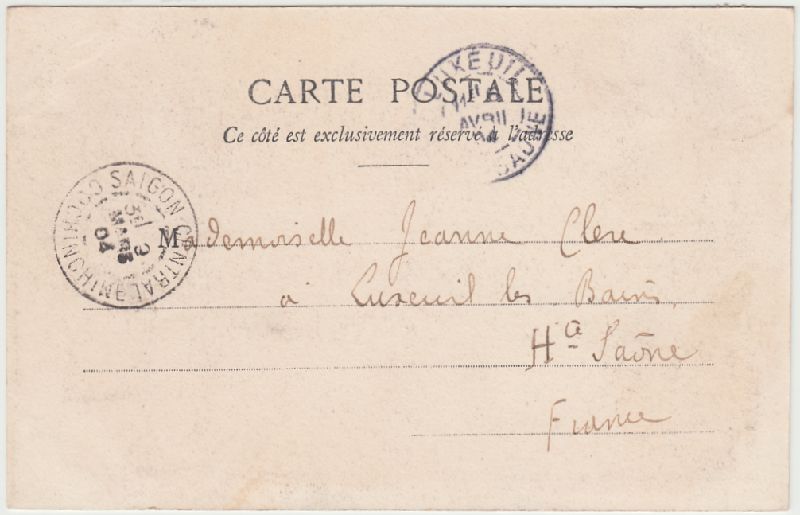 CARTE POSTALE
Ce côté est exclusivement réservé à l'adresse
SAIGON CENTRAL COCHINCHINE
3
MARS
04
Mademoiselle Jeanne Clerc
à Luxeuil les Bains
Hte Saône
France
AVRIL
SAONE